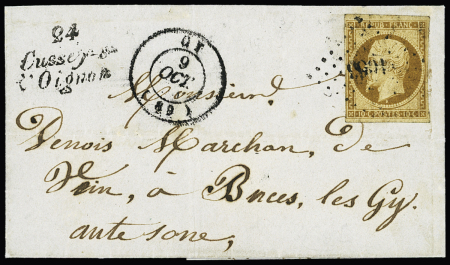 24
Cussey-s-
l'Oignon
GY
9
OCT.
( 69 )
REPUB. FRANC.
10 C. POSTES 10 C.
Monsieur
Denois Marchan, de
Vin, à Buces, les Gy.
aute sone,